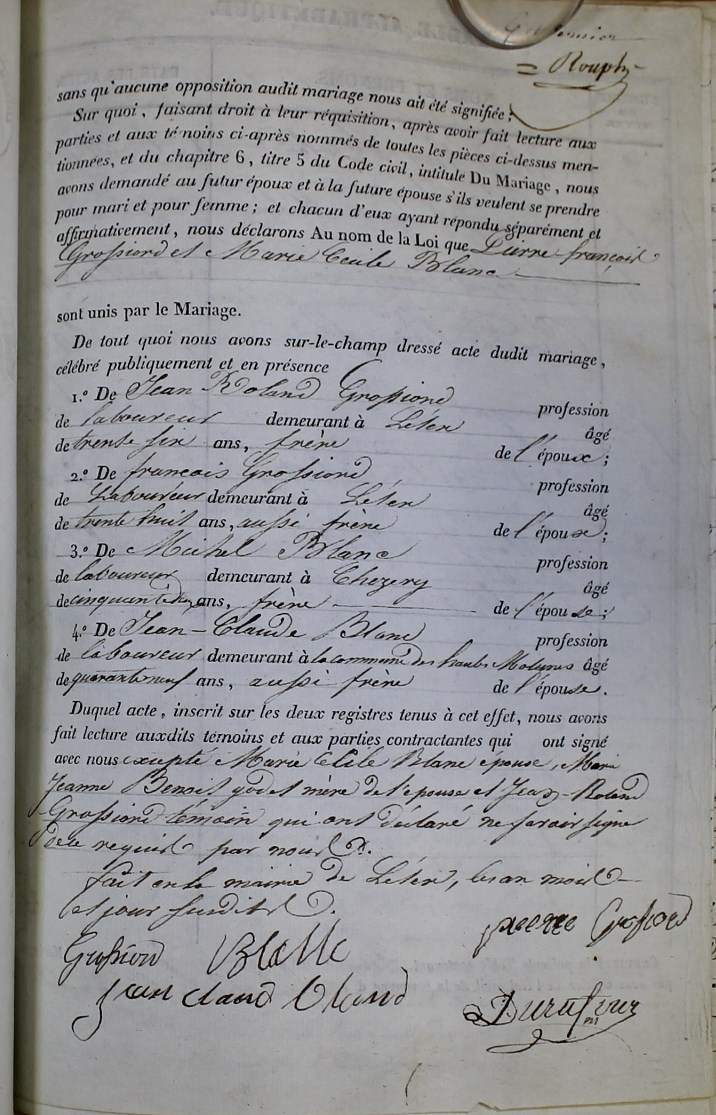 sans qu'aucune opposition audit mariage nous ait été signifiée;
Sur quoi, faisant droit à leur réquisition, après avoir fait lecture aux
parties et aux témoins ci-après nommés de toutes les pièces ci-dessus men-
tionnées, et du chapitre 6, titre 5 du Code civil, intitulé Du Mariage, nous
avons demandé au futur époux et à la future épouse s'ils veulent se prendre
pour mari et pour femme; et chacun d'eux ayant répondu séparément et
affirmativement, nous déclarons Au nom de la Loi que Pierre françois
Grossiord et Marie Cécile Blanc
sont unis par le Mariage.
De tout quoi nous avons sur-le-champ dressé acte dudit mariage,
célébré publiquement et en présence
1.° De Jean Roland Grossiord profession
de laboureur demeurant à Lélex âgé
de trente six ans, frère de l'époux;
2.° De françois Grossiord profession
de Laboureur demeurant à Lélex âgé
de trente huit ans, aussi frère de l'époux;
3.° De Michel Blanc profession
de laboureur demeurant à Chezery âgé
de cinquante ans, frère de l'épouse;
4.° De Jean-Claude Blanc profession
de laboureur demeurant à la commune des hautes Molunes âgé
de quarante neuf ans, aussi frère de l'épouse.
Duquel acte, inscrit sur les deux registres tenus à cet effet, nous avons
fait lecture auxdits témoins et aux parties contractantes qui ont signé
avec nous excepté Marie Cécile Blanc épouse, Marie
Jeanne Benoit god et mère de l'épouse et Jean-Roland
Grossiord témoin qui ont déclaré ne savoir signe
de ce requis par nous.
fait en la mairie de Lélex, les an mois
et jour susdits.
Grossiord Blanc pierre Grossiord
jean claud bland